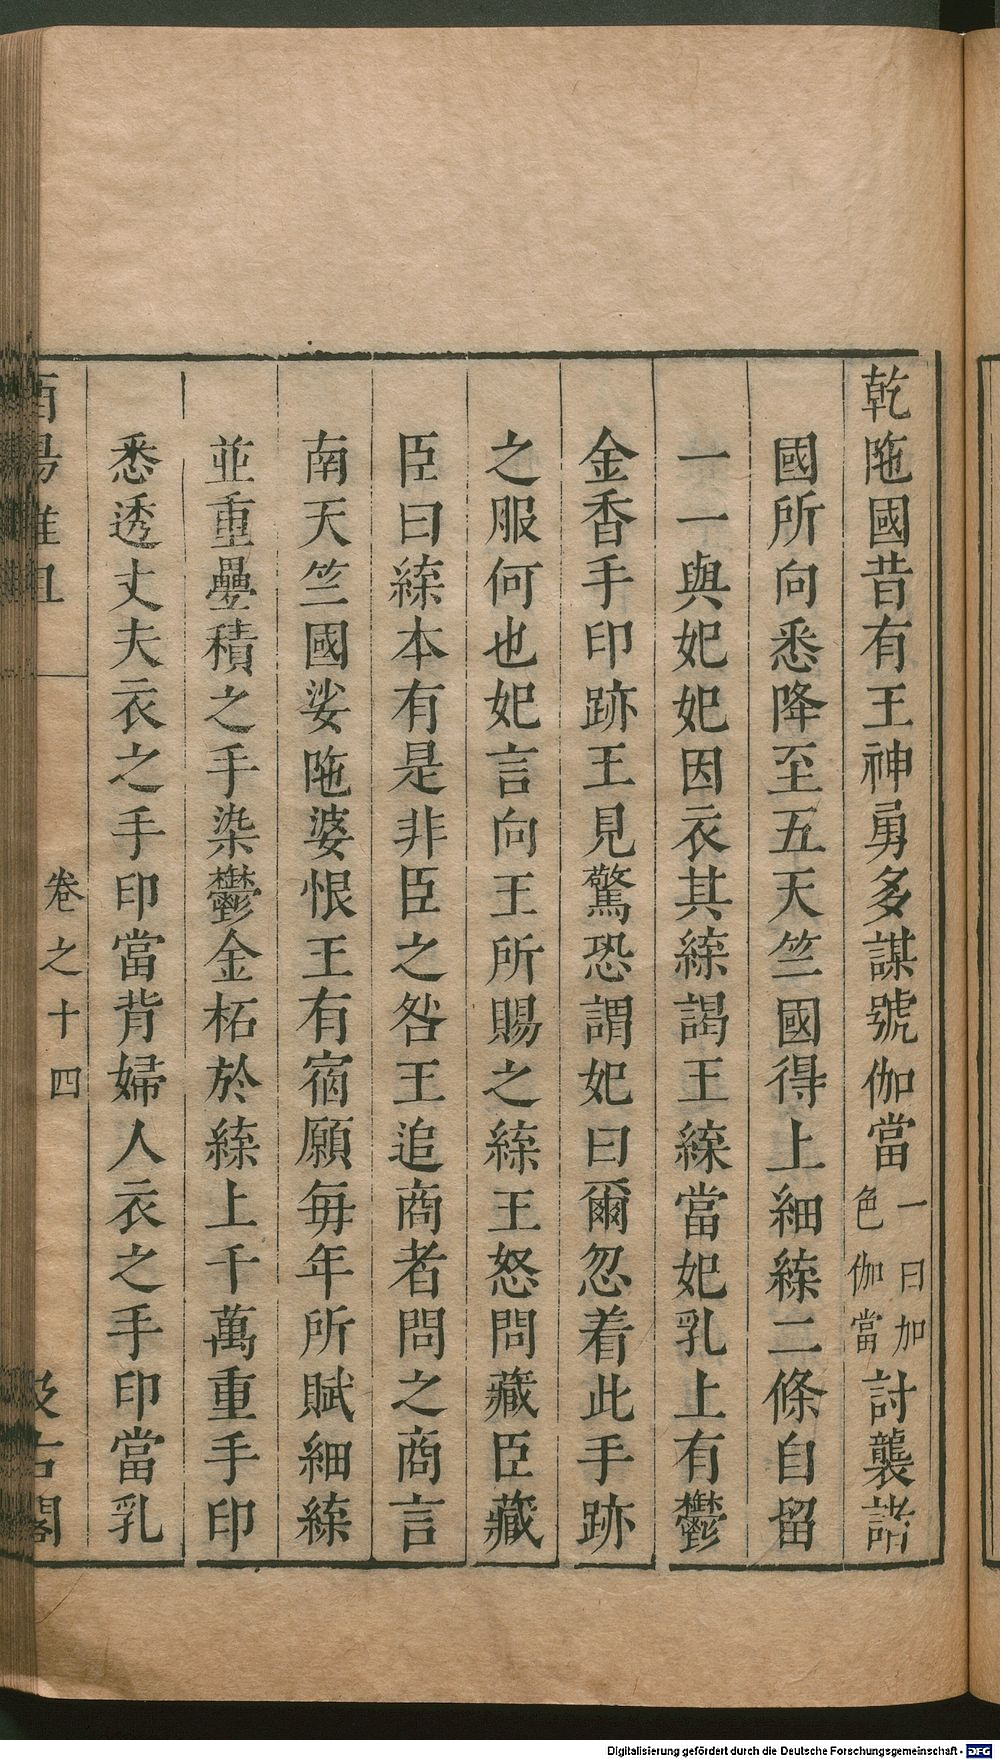 乾陁國昔有王神勇多謀號伽當一曰加色伽當討襲諸
國所向悉降至五天竺國得上細緤二條自留
一一與妃妃因衣其緤謁王緤當妃乳上有鬱
金香手印跡王見驚恐謂妃曰爾忽着此手跡
之服何也妃言向王所賜之緤王怒問藏臣藏
臣曰緤本有是非臣之咎王追商者問之商言
南天竺國娑陁婆恨王有宿願每年所賦細緤
並重疊積之手染鬱金柘於緤上千萬重手印
悉透丈夫衣之手印當背婦人衣之手印當乳
酉陽雜俎
卷之十四
汲古閣
Digitalisierung gefördert durch die Deutsche Forschungsgemeinschaft - DFG